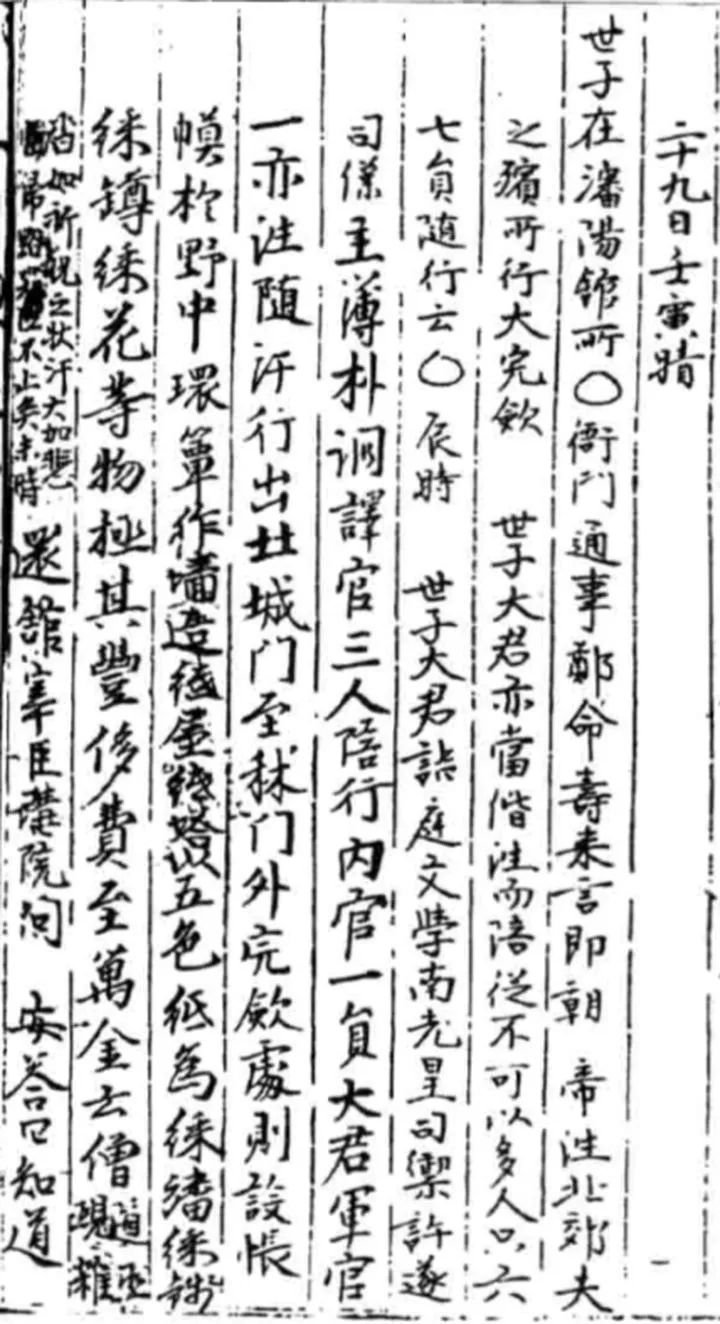 二十九日壬寅晴
世子在瀋陽館所〇衙門通事鄭命壽來言即朝 帝往北郊夫
之殯所行大完斂 世子大君亦當偕往而陪從不可以多人只六
七員随行云〇辰時 世子大君詣庭文學南老星司禦許遂
司僕主簿朴泂譯官三人陪行內官一員大君軍官
一亦往随汗行出北城門至秫门外完斂處則設帳
幙於野中環簟作墻造紙屋紙塔以五色紙爲綵繙綵
綵鐏綵花等物極其豊侈費至萬金云僧道巫覡雜
沓如祈祝之状汗大加悲
歸路不止矣未時還館宰臣講院問 安答曰知道